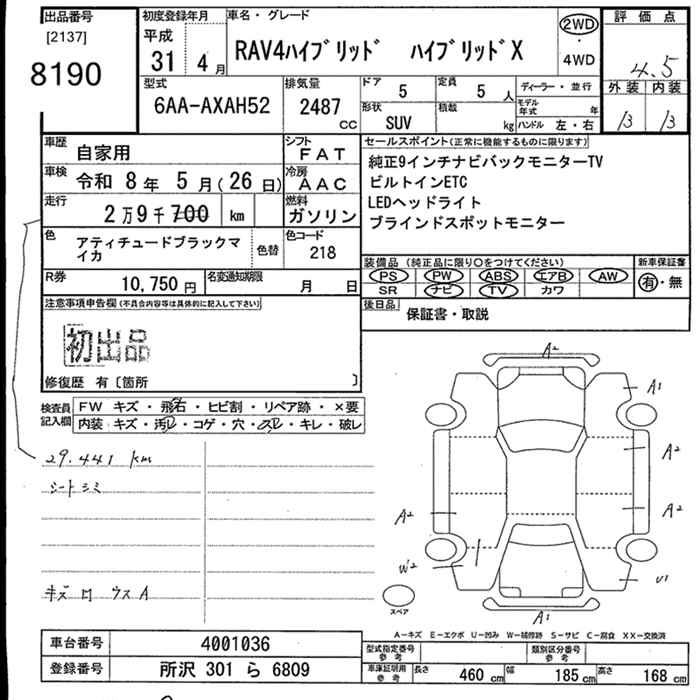 出品番号
[2137]
8190
初度登録年月
平成
31 年 4 月
車名・グレード
RAV4ハイブリッド ハイブリッドX
2WD
・
4WD
評価点
4.5
外装 内装
B B
型式
6AA-AXAH52
排気量
2487
CC
ドア
5
定員
5 人
形状
SUV
積載
kg
ディーラー・並行
モデル年式 年
ハンドル 左・右
車歴
自家用
シフト
FAT
車検
令和 8 年 5 月 ( 26 日)
冷房
AAC
走行
2万9千700 km
燃料
ガソリン
色
アティチュードブラックマイカ
色替
色コード
218
R券
10,750 円
名変通知期限
月 日
セールスポイント(正常に機能するものに限ります)
純正9インチナビバックモニターTV
ビルトインETC
LEDヘッドライト
ブラインドスポットモニター
装備品 (純正品に限り○をつけてください)
PS PW ABS エアB AW
SR ナビ TV カワ
新車保証書
有・無
後日品
保証書・取説
注意事項申告欄(不具合内容等は具体的に記入して下さい)
初出品
修復歴 有〔箇所 〕
検査員記入欄
FW キズ・飛石・ヒビ割・リペア跡・×要
内装 キズ・汚レ・コゲ・穴・スレ・キレ・破レ
29.441 km
シートシミ
キズ ロ ウス A
A2
A1
A2
A2
A2
W2
U1
A1
スペア
A-キズ E-エクボ U-凹み W-補修跡 S-サビ C-腐食 XX-交換済
車台番号
4001036
登録番号
所沢 301 ら 6809
型式指定番号
参考
類別区分番号
参考
車庫証明用
参考
長さ 460 cm 幅 185 cm 高さ 168 cm